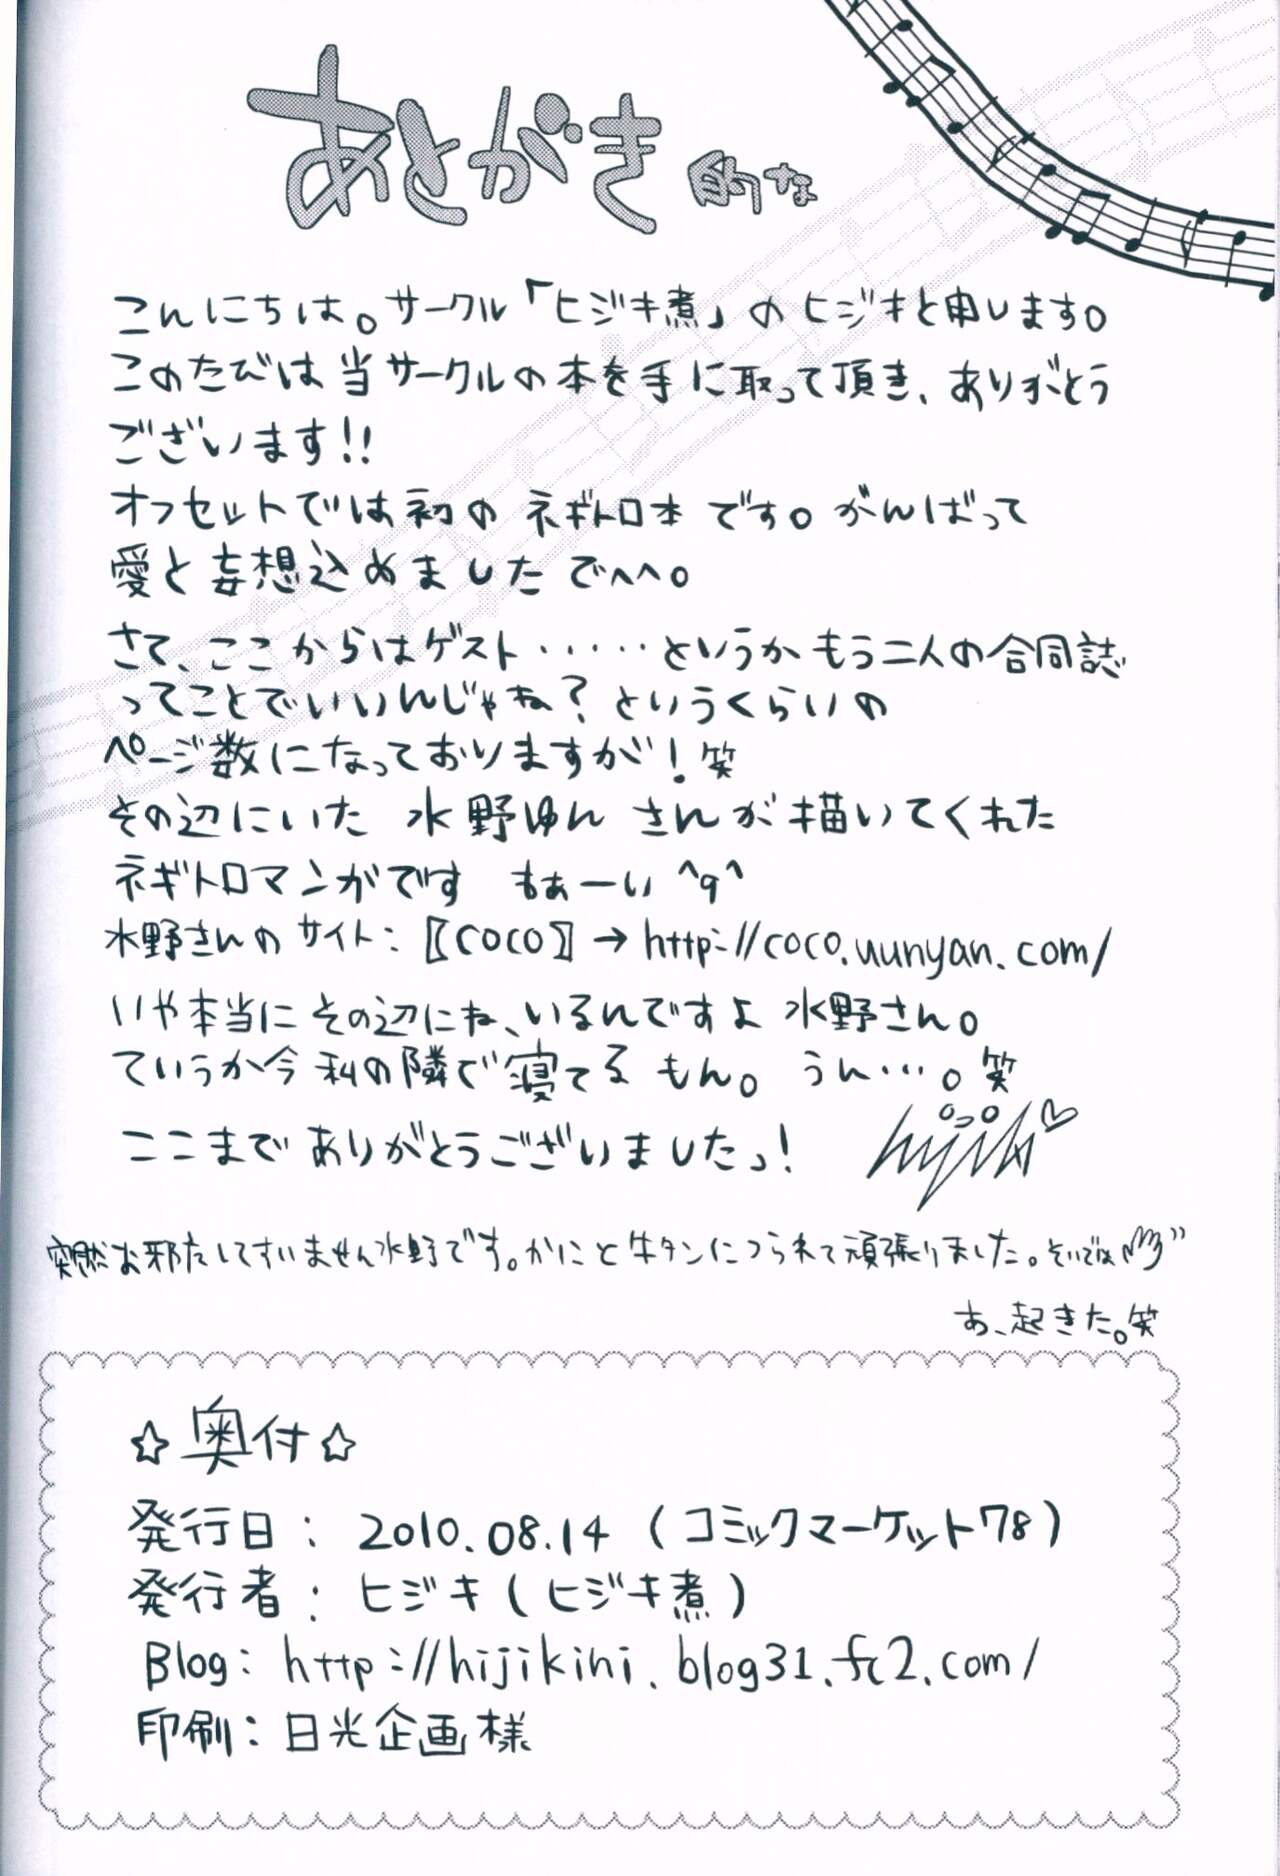 あとがき的な
こんにちは。サークル「ヒジキ煮」のヒジキと申します。
このたびは当サークルの本を手に取って頂き、ありがとう
ございます!!
オフセットでは初の ネギトロ本 です。がんばって
愛と妄想込めました でへへ。
さて、ここからはゲスト・・・・・というかもう二人の合同誌
ってことでいいんじゃね?というくらいの
ページ数になっておりますが!笑
その辺にいた 水野ゆん さんが描いてくれた
ネギトロマンガです もぁーい ^q^
水野さんのサイト:〖COCO〗→http://coco.uunyan.com/
いや本当にその辺にね、いるんですよ 水野さん。
ていうか今私の隣で寝てるもん。 うん…。笑
ここまでありがとうございましたっ!
hijiki♡
突然お邪魔してすいません水野です。かにと牛タンにつられて頑張りました。そいでは
あ、起きた。笑
☆奥付☆
発行日: 2010.08.14(コミックマーケット78)
発行者: ヒジキ(ヒジキ煮)
Blog: http://hijikini.blog31.fc2.com/
印刷: 日光企画様